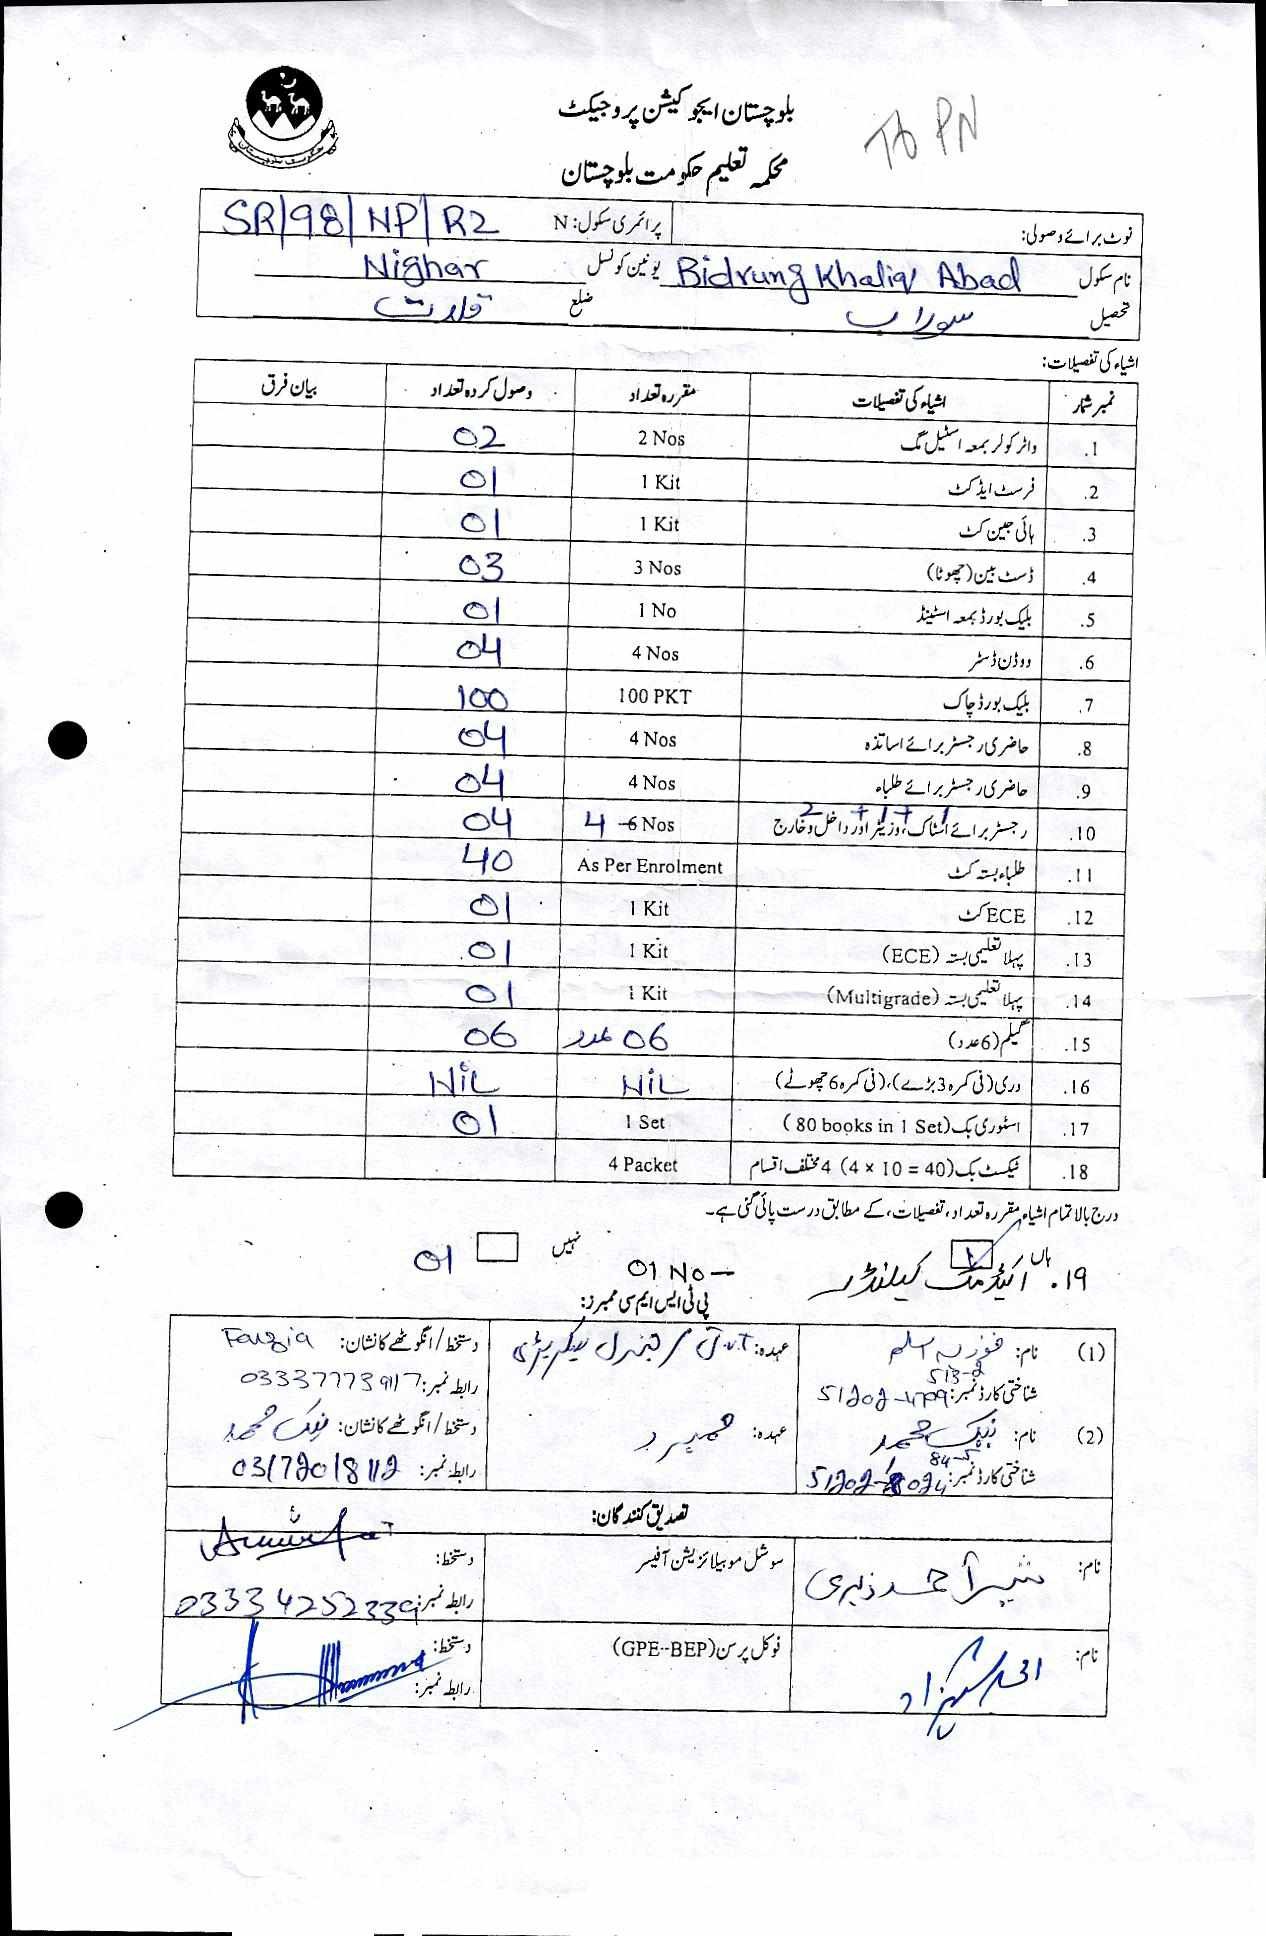 بلوچستان ایجوکیشن پروجیکٹ
To PN
محکمہ تعلیم حکومت بلوچستان
نوٹ برائے وصولی: پرائمری سکول: N SR/98/NP/R2
نام سکول Bidrung Khaliq Abad یونین کونسل Nighar
تحصیل سوراب ضلع قلات
اشیاء کی تفصیلات:
نمبر شمار اشیاء کی تفصیلات مقررہ تعداد وصول کردہ تعداد بیان فرق
1. واٹر کولر بمعہ اسٹیل مگ 2 Nos 02
2. فرسٹ ایڈ کٹ 1 Kit 01
3. ہائی جین کٹ 1 Kit 01
4. ڈسٹ بین (چھوٹا) 3 Nos 03
5. بلیک بورڈ بمعہ اسٹینڈ 1 No 01
6. ووڈن ڈسٹر 4 Nos 04
7. بلیک بورڈ چاک 100 PKT 100
8. حاضری رجسٹر برائے اساتذہ 4 Nos 04
9. حاضری رجسٹر برائے طلباء 4 Nos 04
2 + 1 + 1
10. رجسٹر برائے اسٹاک، وزیٹر اور داخل وخارج 4 6 Nos 04
11. طلباء بستہ کٹ As Per Enrolment 40
12. ECE کٹ 1 Kit 01
13. پہلا تعلیمی بستہ (ECE) 1 Kit 01
14. پہلا تعلیمی بستہ (Multigrade) 1 Kit 01
15. گلیم (6 عدد) 06 عدد 06
16. دری (فی کمرہ 3 بڑے)، (فی کمرہ 6 چھوٹے) NiL NiL
17. اسٹوری بک (80 books in 1 Set) 1 Set 01
18. ٹیکسٹ بک (4 × 10 = 40) 4 مختلف اقسام 4 Packet
درج بالا تمام اشیاء مقررہ تعداد، تفصیلات، کے مطابق درست پائی گئی ہے۔
ہاں نہیں
۱۹. اکیڈمک کیلنڈر 01 No - 01
پی ٹی ایس ایم سی ممبرز:
(1) نام: فوزیہ اسلم عہدہ: J.V.T / جنرل سیکریٹری دستخط / انگوٹھے کا نشان: Fauzia
513-2
شناختی کارڈ نمبر: 51202-4799 رابطہ نمبر: 03337773917
(2) نام: نیک محمد عہدہ: دستخط / انگوٹھے کا نشان: نیک محمد
84-5
شناختی کارڈ نمبر: رابطہ نمبر: 03172018112
تصدیق کنندگان:
نام: سوشل موبیلائزیشن آفیسر دستخط:
رابطہ نمبر: 03334252339
نام: فوکل پرسن (GPE--BEP) دستخط:
رابطہ نمبر: